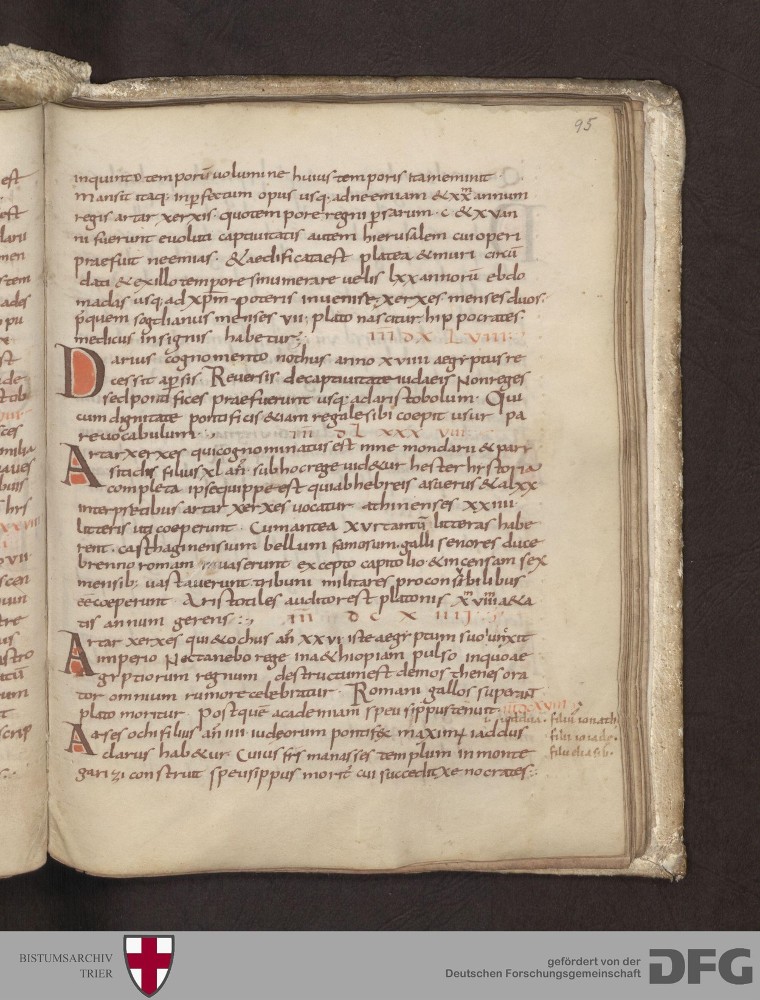 95
inquinto temporū uolumine huius temporis ita meminit
mansit itaq; inp̱fectum opus usq; ad neemiam & xx̄ annum
regis artarxerxis. quo tempore regni p̱sarum. c & xv an
ni fuerunt euoluti captiuitatis autem hierusalem cui operi
praefuit neemias. & aedificata est platea & muri circū
dati & ex illo tempore si numerare uelis lxx annorū ebdo
madas usq; ad xp̄m poteris inuenire. xerxes menses duos.
p̱ quem sogdianus menses vii. plato nascitur hippocrates.
medicus insignis habetur; īīī dxlviii
Darius cognomento nothus anno xviiii aegyptus re
cessit a p̱sis. Reuersis de captiuitate iudaeis Non reges
sed pontifices praefuerunt usq; ad aristobolum. Qui
cum dignitate pontificis &iam regale sibi coepit usur pa
re uocabulum. īīī dlxxxviii
Artarxerxes qui cognominatus est mnemon darii & pary
sitidis filius xl añ sub hoc rege uid&ur hester hystoria
completa ipse quippe est qui ab hebreis asuerus & a lxx
interpretibus artarxerxes uocatur athinenses xxiiii
litteris uti coeperunt. Cum antea xvi tantū litteras habe
rent. casthaginensium bellum famosum. galli senores duce
brenno romam inuaserunt excepto capitolio & incensam sex
mensib; uastauerunt. tribuni militares pro consulibus
ee coeperunt. Aristotiles auditor est platonis xviii a&a
tis annum gerens; īīī dcxiiii
Artarxerxes qui & ochus añ xxvi iste aegyptum suo iunxit
imperio Nectanebo rege in a&hiopiam pulso in quo ae
gyptiorum regnum destructum est demosthenes ora
tor omnium rumore celebratur. Romani gallos superant
plato moritur. Post quē academiam speusippus tenuit.
Arses ochi filius añ iiii iudeorum pontifex maxim; iaddus
clarus hab&ur. Cuius fr̄s manasses templum in monte
garizi construit speusippus morit̄ cui succedit xenocrates:
filii ionath
filii ioiade.
filii eliasib.
BISTUMSARCHIV
TRIER
gefördert von der
Deutschen Forschungsgemeinschaft
DFG